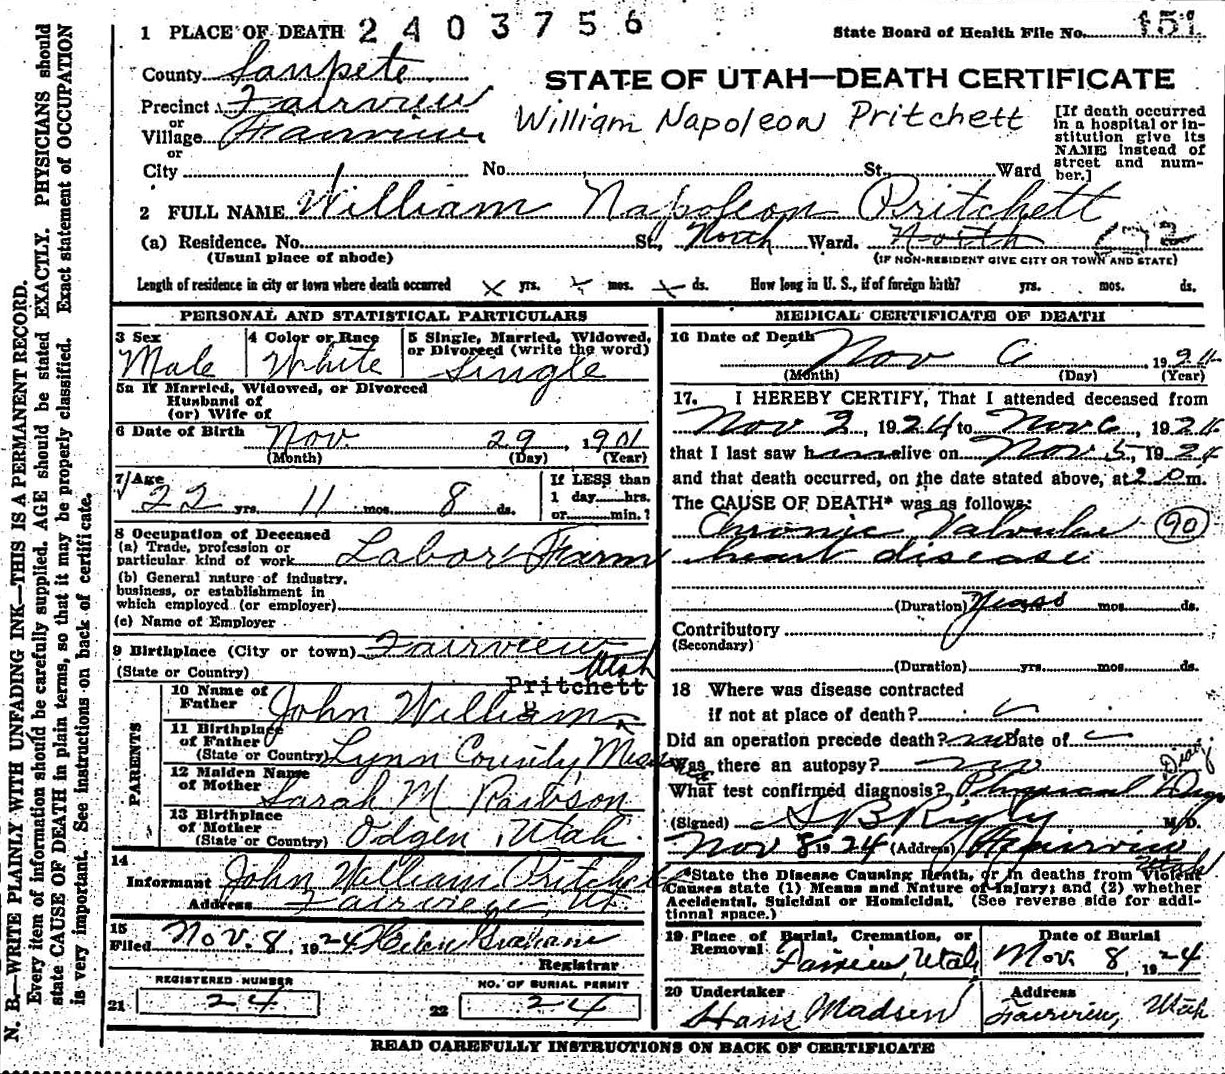 1 PLACE OF DEATH 2403756
State Board of Health File No. 151
County Sanpete
STATE OF UTAH—DEATH CERTIFICATE
Precinct Fairview
or
Village Fairview
William Napoleon Pritchett
[If death occurred in a hospital or institution give its NAME instead of street and number.]
or
City No. St. Ward
2 FULL NAME William Napoleon Pritchett
(a) Residence. No. St., North Ward. North
(Usual place of abode) (IF NON-RESIDENT GIVE CITY OR TOWN AND STATE)
Length of residence in city or town where death occurred X yrs. X mos. X ds. How long in U. S., if of foreign birth? yrs. mos. ds.
PERSONAL AND STATISTICAL PARTICULARS
3 Sex Male
4 Color or Race White
5 Single, Married, Widowed, or Divorced (write the word) Single
5a If Married, Widowed, or Divorced
Husband of
(or) Wife of
6 Date of Birth Nov 29, 1901
(Month) (Day) (Year)
7 Age 22 yrs. 11 mos. 8 ds.
If LESS than
1 day hrs.
or min.?
8 Occupation of Deceased
(a) Trade, profession or
particular kind of work Labor Farm
(b) General nature of industry,
business, or establishment in
which employed (or employer)
(c) Name of Employer
9 Birthplace (City or town) Fairview
(State or Country) Utah
PARENTS
Pritchett
10 Name of
Father John William
11 Birthplace
of Father
(State or Country) Lynn County
12 Maiden Name
of Mother Sarah M.
13 Birthplace
of Mother
(State or Country) Odgen, Utah
14
Informant John William Pritchett
Address Fairview, Ut
15
Filed Nov. 8, 1924 Helen Graham
Registrar
REGISTERED NUMBER
21 24
NO. OF BURIAL PERMIT
22 24
MEDICAL CERTIFICATE OF DEATH
16 Date of Death Nov 6 1924
(Month) (Day) (Year)
17. I HEREBY CERTIFY, That I attended deceased from
Nov 3, 1924 to Nov 6, 1924
that I last saw him alive on Nov 5, 1924
and that death occurred, on the date stated above, at m.
The CAUSE OF DEATH* was as follows:
Chronic Valvular 90
heart disease
(Duration) Years mos. ds.
Contributory
(Secondary)
(Duration) yrs. mos. ds.
18 Where was disease contracted
if not at place of death?
Did an operation precede death? no Date of
Was there an autopsy? no
What test confirmed diagnosis? Physical Diag
(Signed) S B Rigby M.D.
Nov 8 1924 (Address) Fairview Utah
*State the Disease Causing Death, or in deaths from Violent
Causes state (1) Means and Nature of Injury; and (2) whether
Accidental, Suicidal or Homicidal. (See reverse side for addi-
tional space.)
19 Place of Burial, Cremation, or
Removal Fairview, Utah
Date of Burial
Nov. 8, 1924
20 Undertaker Hans Madsen
Address Fairview, Utah
READ CAREFULLY INSTRUCTIONS ON BACK OF CERTIFICATE
N. B.—WRITE PLAINLY WITH UNFADING INK—THIS IS A PERMANENT RECORD.
Every item of information should be carefully supplied. AGE should be stated EXACTLY. PHYSICIANS should
state CAUSE OF DEATH in plain terms, so that it may be properly classified. Exact statement of OCCUPATION
is very important. See instructions on back of certificate.